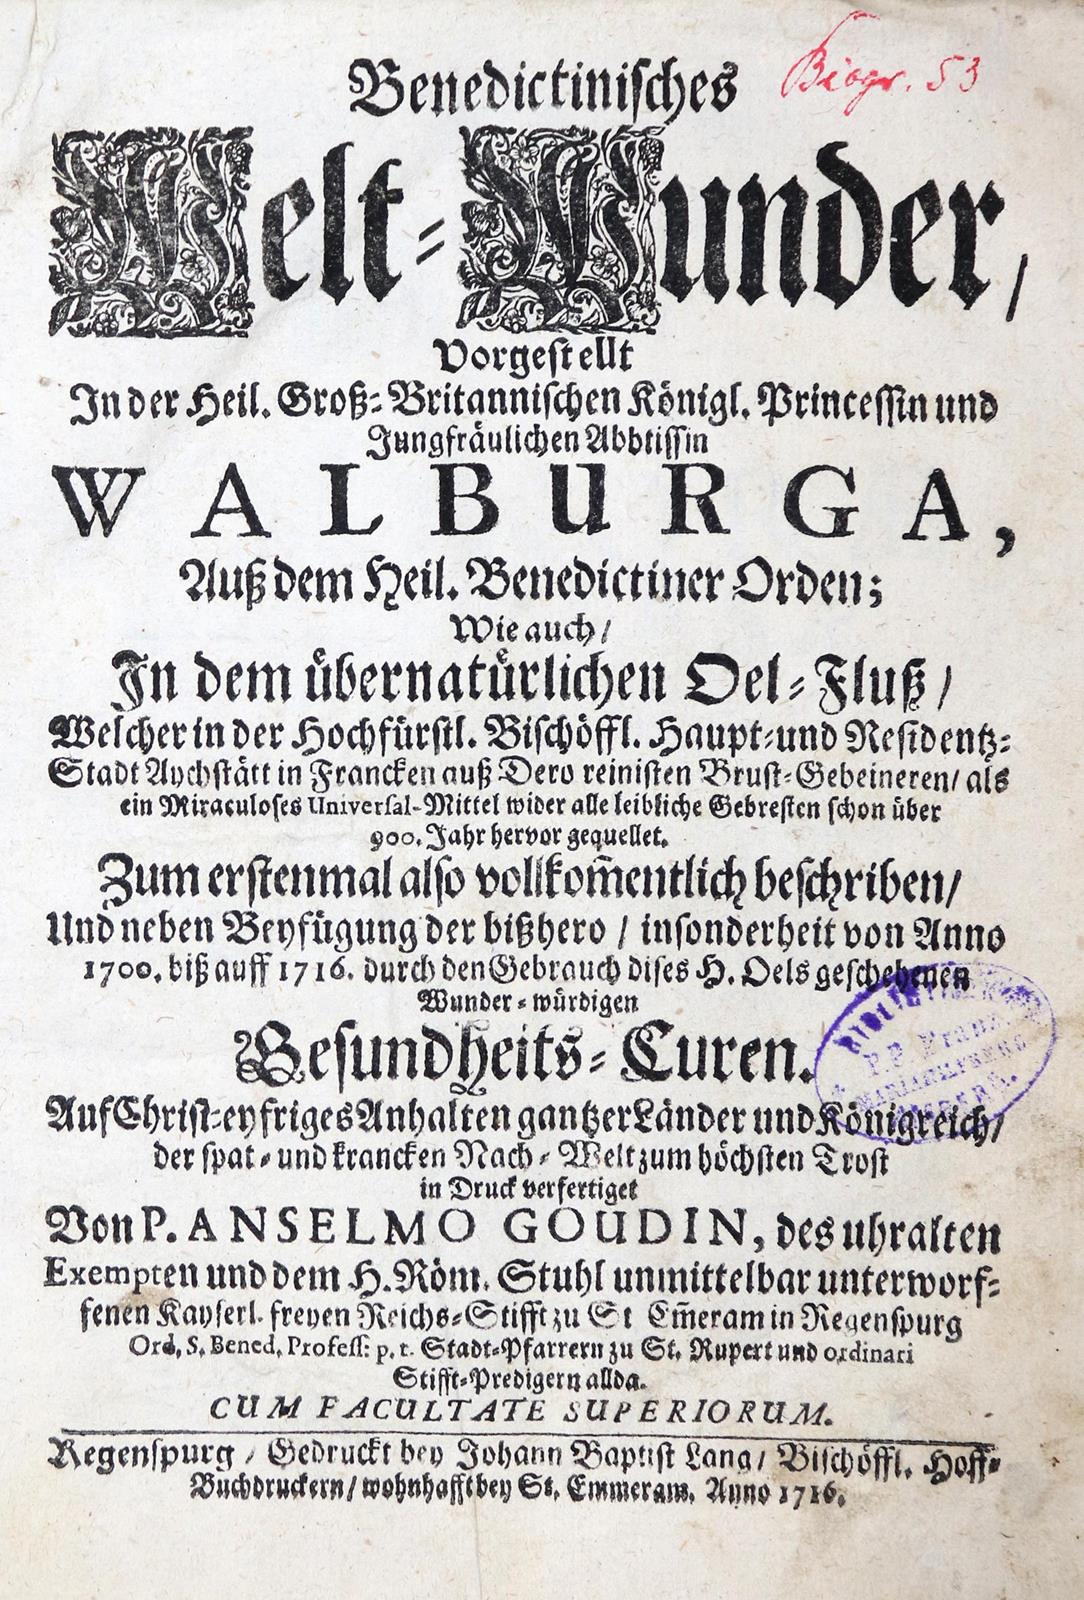 Biogr. 53
Benedictinisches
Welt-Wunder/
Vorgestellt
In der Heil. Groß-Britannischen Königl. Princessin und
Jungfräulichen Abbtissin
WALBURGA,
Auß dem Heil. Benedictiner Orden;
Wie auch/
In dem übernatürlichen Oel-Fluß/
Welcher in der Hochfürstl. Bischöffl. Haupt-und Residentz-
Stadt Aychstätt in Francken auß Dero reinisten Brust-Gebeineren/ als
ein Miraculoses Universal-Mittel wider alle leibliche Gebresten schon über
900. Jahr hervor gequellet.
Zum erstenmal also vollkom̄entlich beschriben/
Und neben Beyfügung der bißhero / insonderheit von Anno
1700. biß auff 1716. durch den Gebrauch dises H. Oels geschehenen
Wunder-würdigen
Gesundheits-Curen.
Auf Christ-eyfriges Anhalten gantzer Länder und Königreich/
der spat- und krancken Nach-Welt zum höchsten Trost
in Druck verfertiget
Von P. ANSELMO GOUDIN, des uhralten
Exempten und dem H. Röm. Stuhl unmittelbar unterworf-
fenen Kayserl. freyen Reichs-Stifft zu St Em̄eram in Regenspurg
Ord. S. Bened. Profess: p. t. Stadt-Pfarrern zu St. Rupert und ordinari
Stifft-Predigern allda.
CUM FACULTATE SUPERIORUM.
Regenspurg / Gedruckt bey Johann Baptist Lang/ Bischöffl. Hoff-
Buchdruckern/ wohnhafft bey St. Emmeram. Anno 1716.